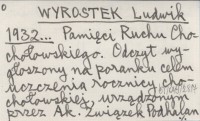 WYROSTEK Ludwik
1932... Pamięci Ruchu Cho-
chołowskiego. Odczyt wy-
głoszony na poranku celem
uczczenia rocznicy cho-
chołowskiej urządzonym
przez Ak. Związek Podhalan